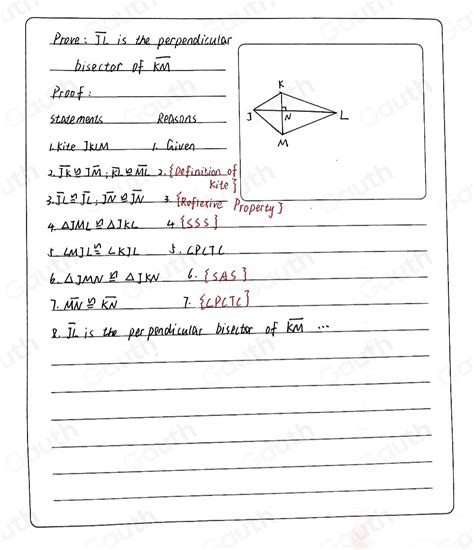 Prove: JL is the perpendicular
bisector of KM
Proof:
Statements Reasons
1. Kite JKLM 1. Given
2. JK ≅ JM ; KL ≅ ML 2. {Definition of
Kite}
3. JL ≅ JL ; JN ≅ JN 3. {Reflexive Property}
4. △JML ≅ △JKL 4. {SSS}
5. ∠MJL ≅ ∠KJL 5. CPCTC
6. △JMN ≅ △JKN 6. {SAS}
7. MN ≅ KN 7. {CPCTC}
8. JL is the perpendicular bisector of KM ...
K
J
N
L
M
Gauth